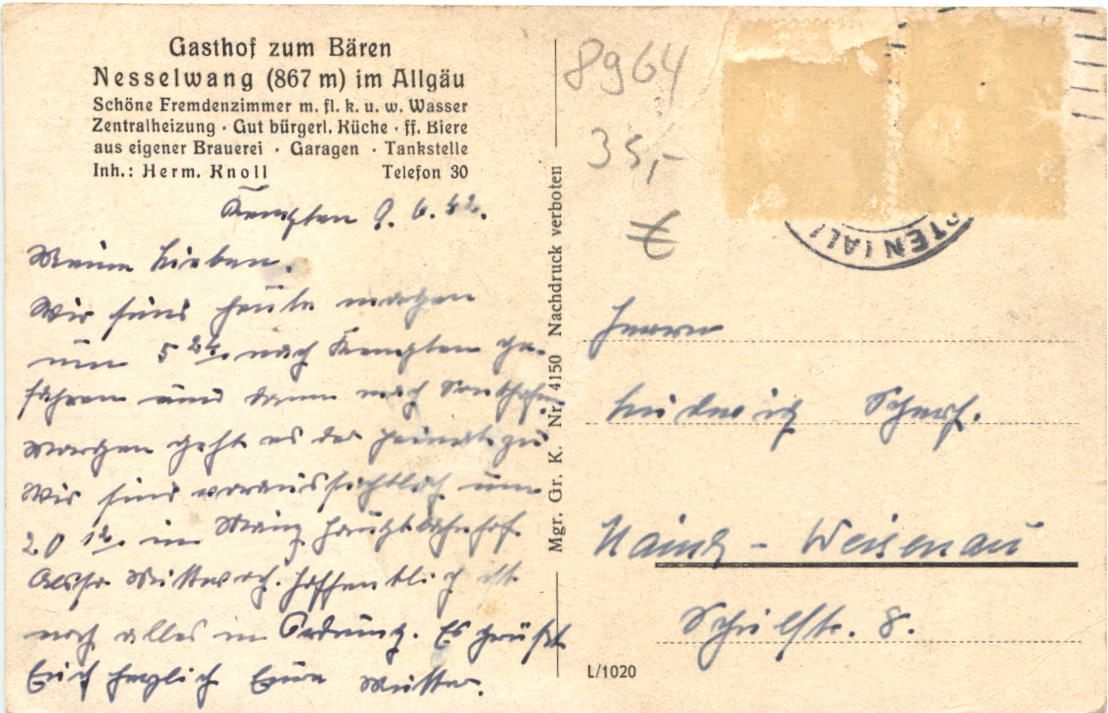 Gasthof zum Bären
Nesselwang (867 m) im Allgäu
Schöne Fremdenzimmer m. fl. k. u. w. Wasser
Zentralheizung · Gut bürgerl. Küche · ff. Biere
aus eigener Brauerei · Garagen · Tankstelle
Inh.: Herm. Knoll Telefon 30
Kempten 9. 6. 42.
Meine Lieben.
Wir sind heute morgen
um 5 24. nach Kempten ge-
fahren und dann nach Sonthofen
Morgen geht es der Heimat zu
Wir sind voraussichtlich um
20 12. in Mainz Hauptbahnhof.
Also Mittwoch. Hoffentlich ist
noch alles in Ordnung. Es grüßt
Euch herzlich Eure Mutter.
Mgr. Gr. K. Nr. 4150 Nachdruck verboten
8964
35,-
€
PTEN (AL
Herrn
Ludwig Scherf.
Mainz - Weisenau
Schillstr. 8.
L/1020